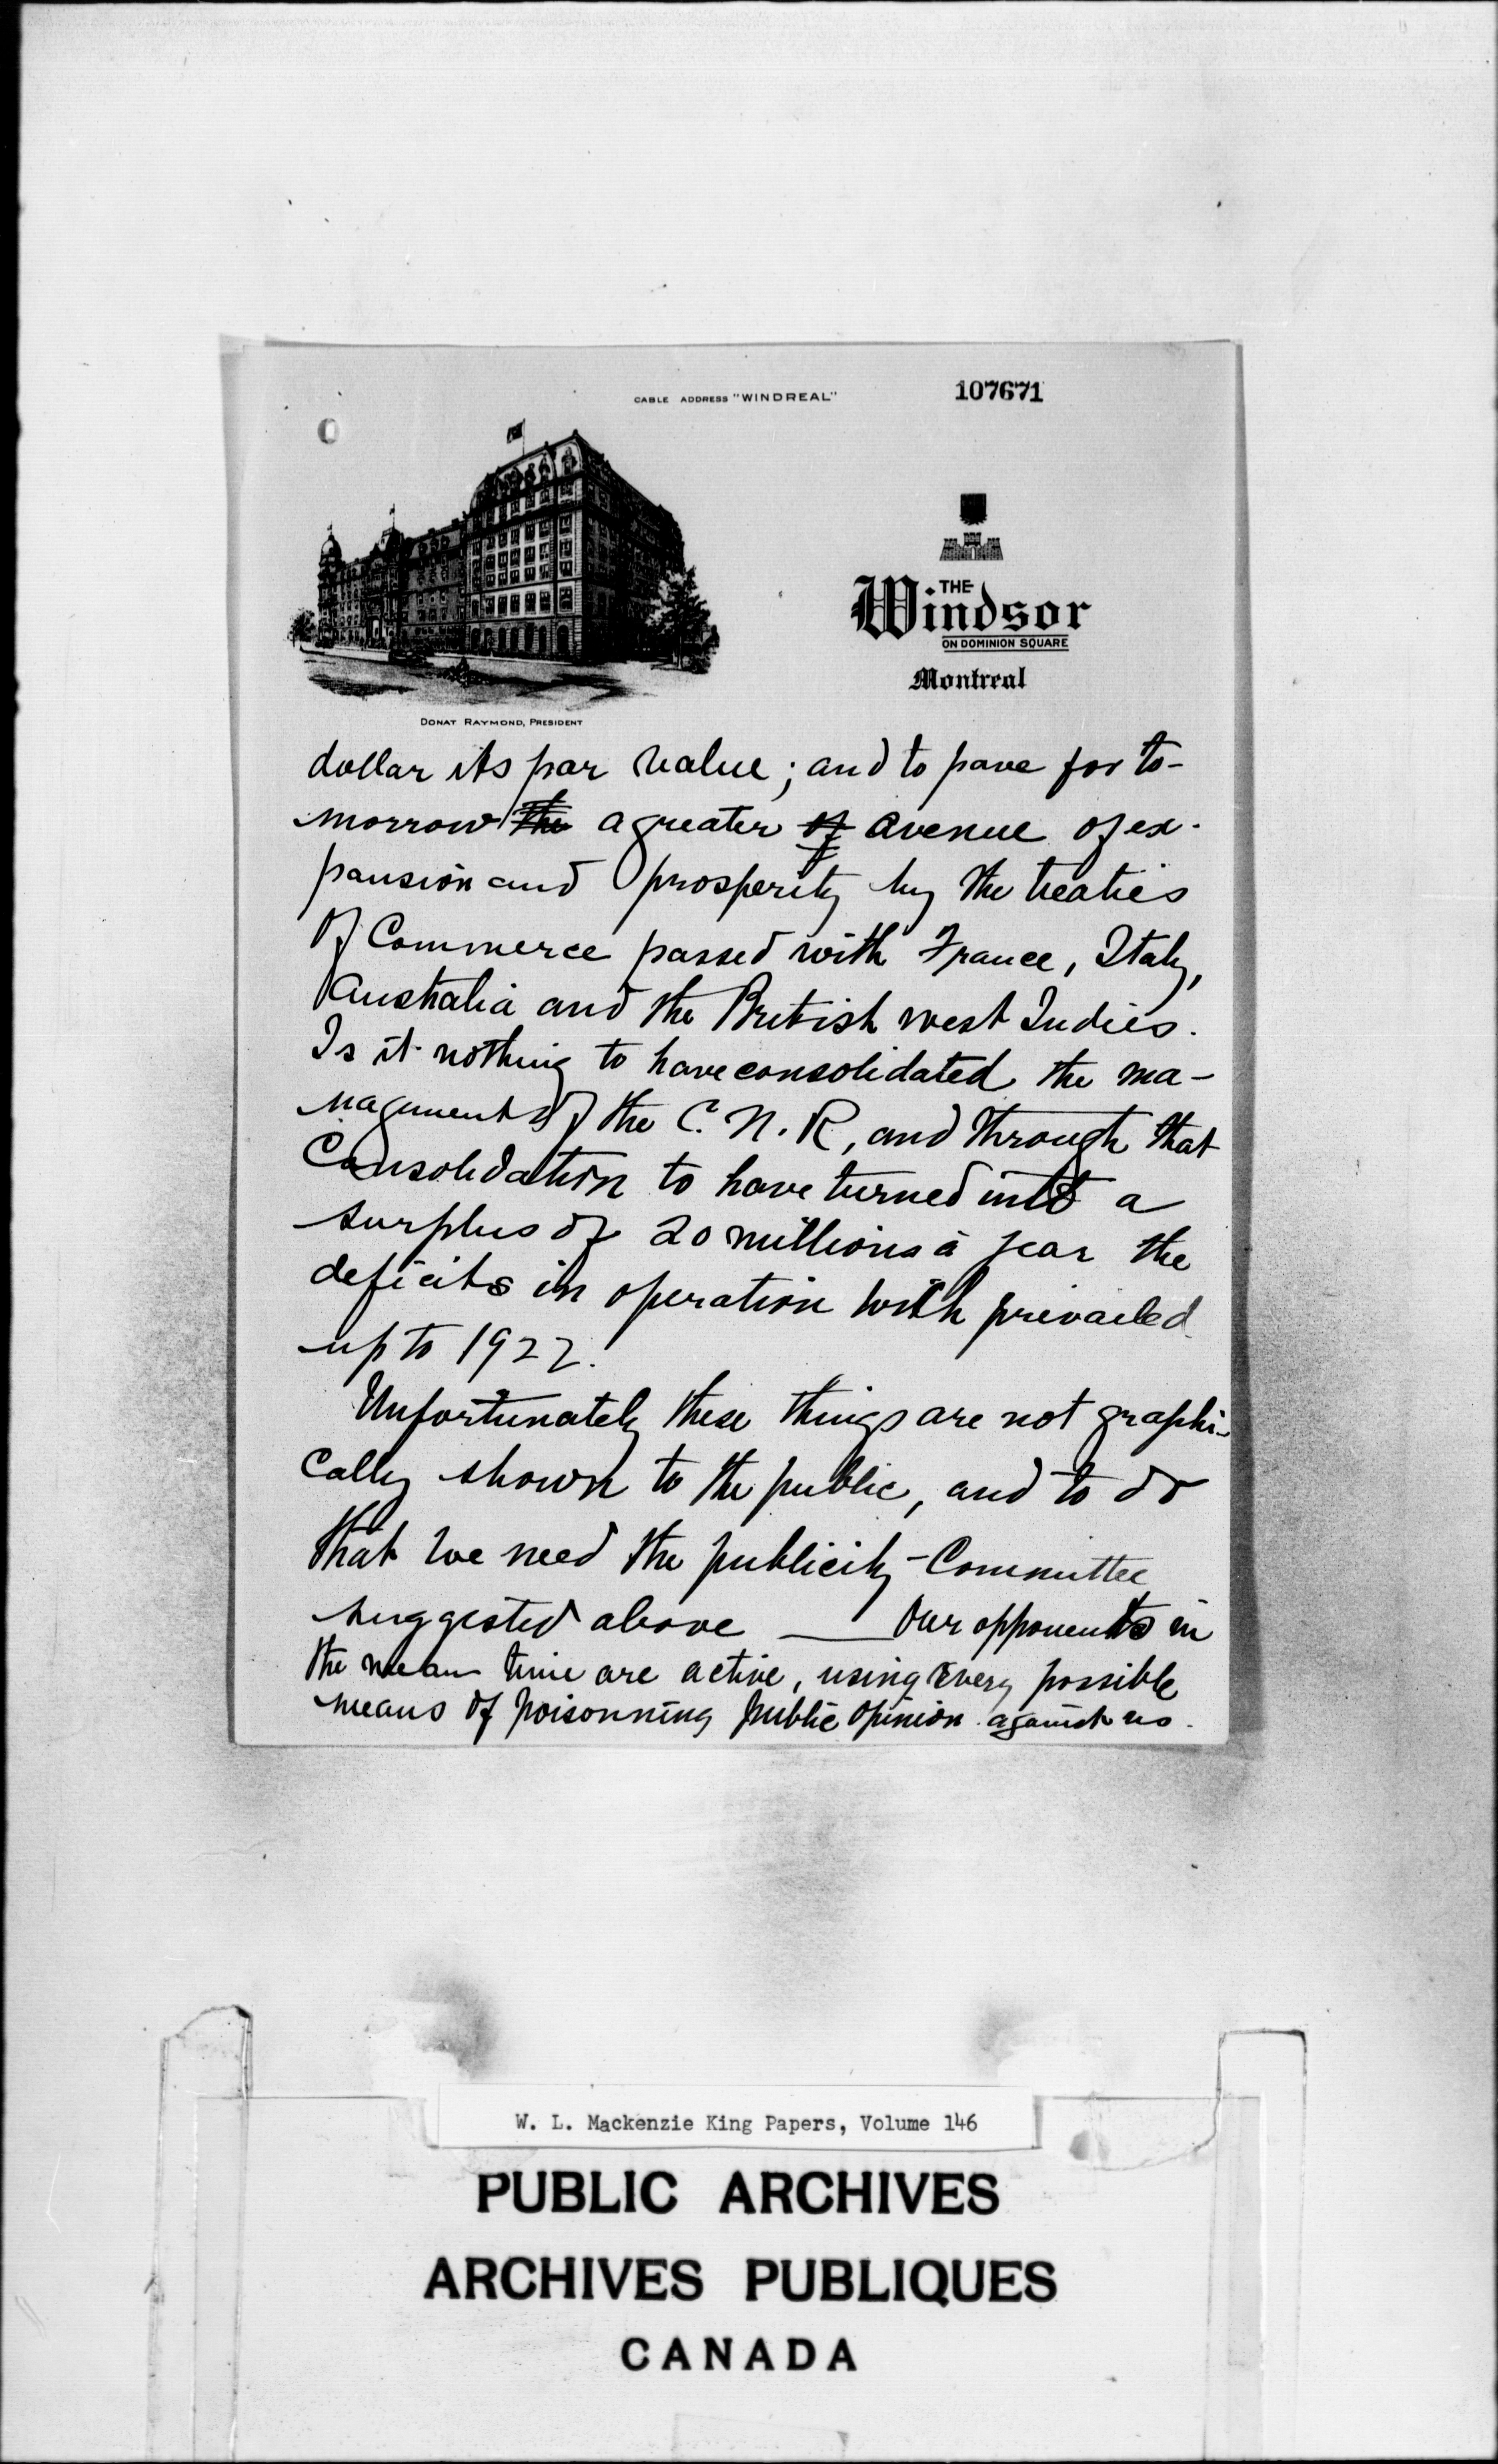 CABLE ADDRESS "WINDREAL"
107671
THE
Windsor
ON DOMINION SQUARE
Montreal
DONAT RAYMOND, PRESIDENT
dollar its par value; and to pave for to-
morrow the a greater of avenue of ex-
pansion and prosperity by the treaties
of Commerce passed with France, Italy,
Australia and the British west Indies.
Is it nothing to have consolidated the ma-
nagement of the C. N. R, and through that
Consolidation to have turned into a
surplus of 20 millions a year the
deficits in operation with prevailed
up to 1922.
Unfortunately these things are not graphi-
cally shown to the public, and to do
that we need the publicity-Committee
suggested above — Our opponents in
the mean time are active, using every possible
means of poisonning public opinion against us.
W. L. Mackenzie King Papers, Volume 146
PUBLIC ARCHIVES
ARCHIVES PUBLIQUES
CANADA